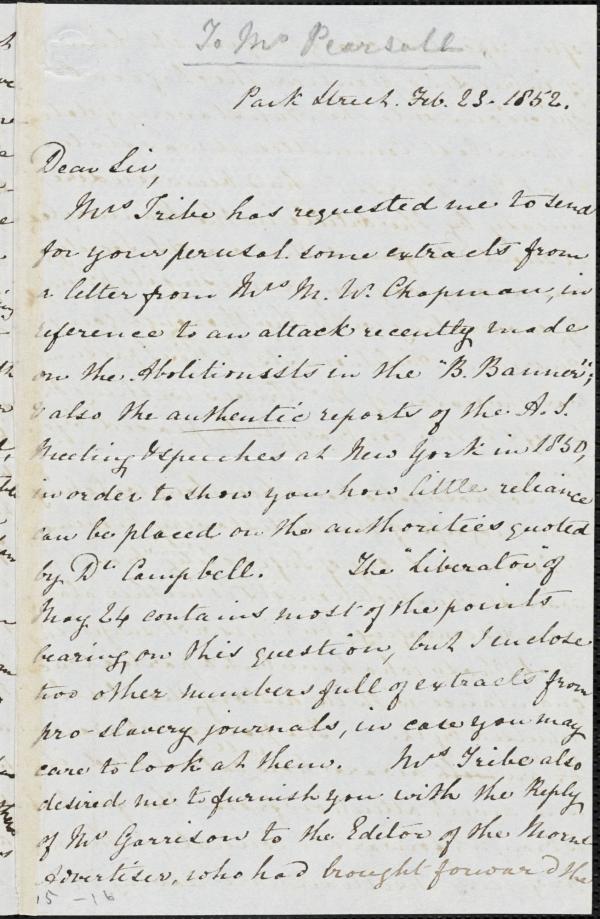 To Mr Pearsall.
Park Street. Feb. 23. 1852.
Dear Sir,
Mrs Tribe has requested me to send
for your perusal some extracts from
a letter from Mrs M. W. Chapman, in
reference to an attack recently made
on the Abolitionists in the "B. Banner";
& also the authentic reports of the A. S.
Meeting & speeches at New York in 1850,
in order to show you how little reliance
can be placed on the authorities quoted
by Dr Campbell. The "Liberator" of
May 24 contains most of the points
bearing on this question, but I enclose
two other numbers full of extracts from
pro-slavery journals, in case you may
care to look at them. Mrs Tribe also
desired me to furnish you with the Reply
of Mr Garrison to the Editor of the Morng
Advertiser, who had brought forward the
15-16